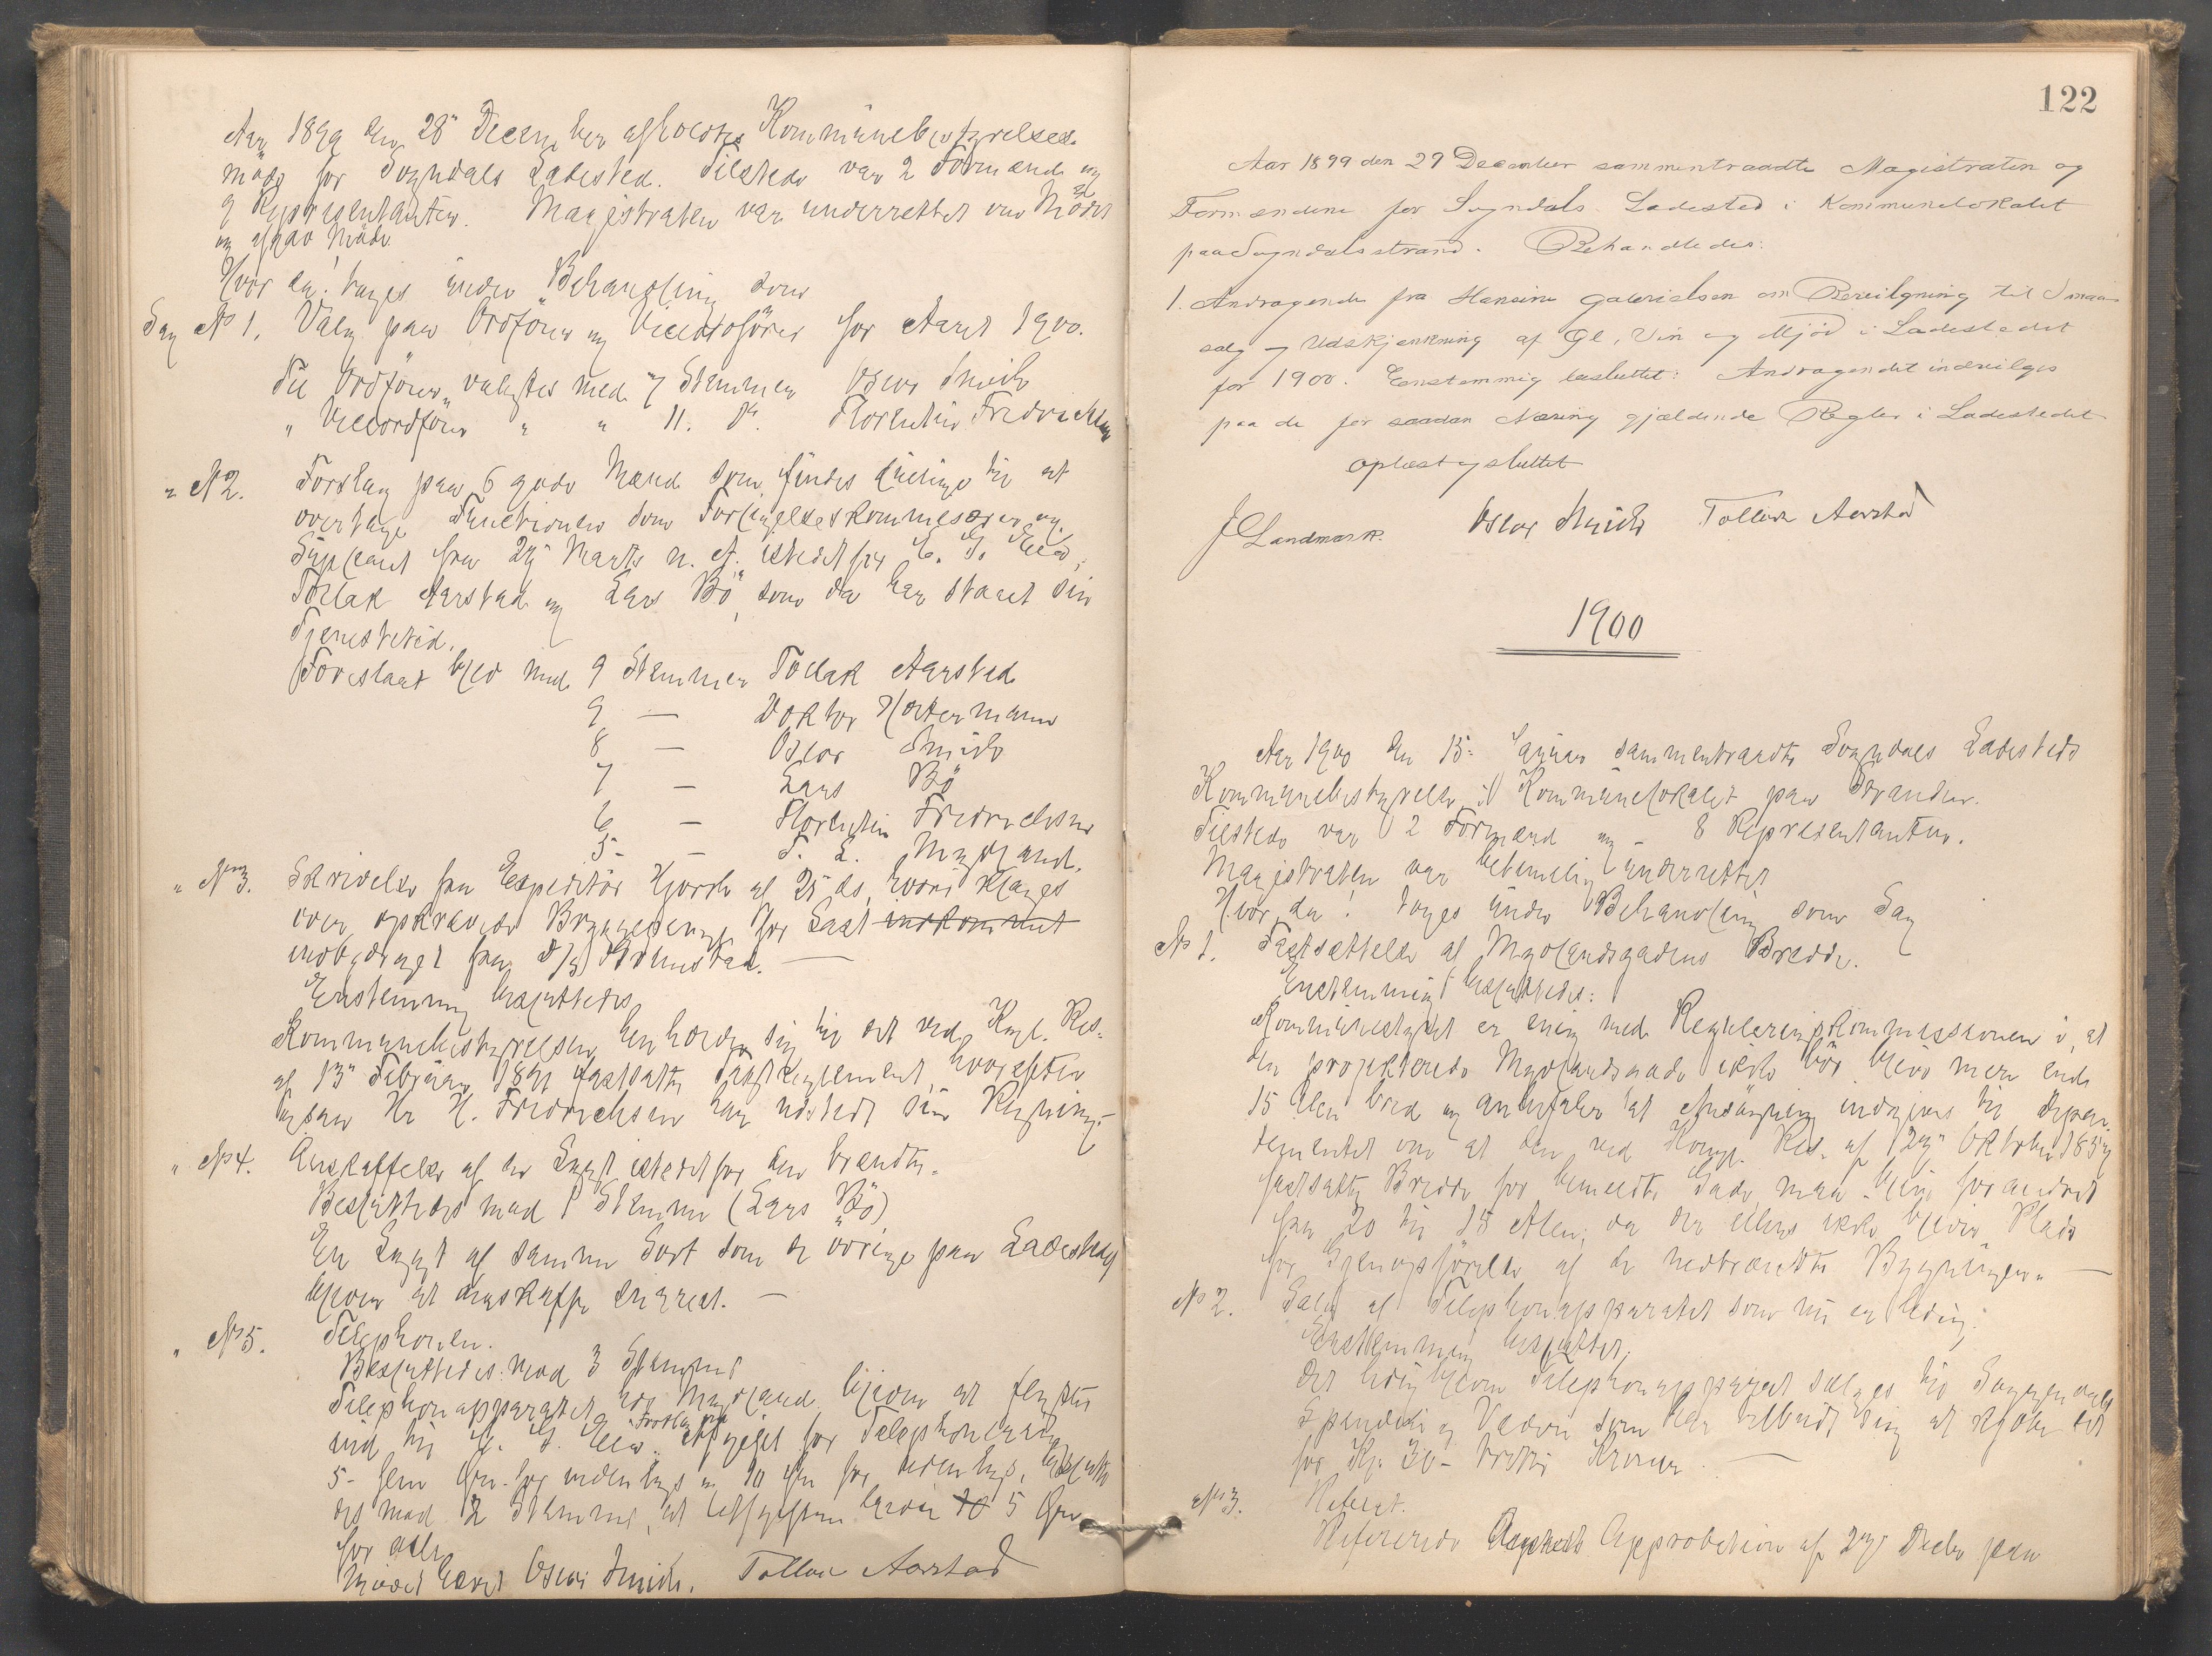 Aar 1899 den 28 December afholdtes Kommunebestyrelses-
møde for Sogndals Ladested. Tilstede var 2 Formænd og
9 Repræsentanter. Magistraten var underrettet om Mødet
og afgav Møde
Hvor da! toges under Behandling som
Sag No 1. Valg paa Ordfører og Viceordfører for Aaret 1900.
Til Ordfører valgtes med 7 Stemmer Oscar Smith
" Viceordfører " " 11. Do. Florentin Fredrichsen
" No 2. Forslag paa 6 gode Mænd som findes duelige til at
overtage Functionen som Forligelseskommissærer og
Suppleant fra 29 Marts n. A. istedetfor E. G. Eeg,
Tollak Aarstad og Lars Bö, som da har staaet sin
Tjenestetid.
Foreslaaet blev med 9 Stemmer Tollak Aarstad
9 — Doktor
8 — Oscar Smith
7 — Lars Bö
6 — Florentin Fredrichsen
5 — T. L. Mydland.
" No 3. Skrivelse fra Expeditör Hjorth af 25 ds, hvori klages
over opkrævede Bryggepenge for Last indkommet
indbragt fra D/S
Enstemmig besluttedes
Kommunebestyrelsen henholder sig til det ved Kngl. Res.
af 13 Februar 1891 fastsatte Taxtreglement, hvorefter
ogsaa Hr H. Fredrichsen har udstedt sin Regning.
" No 4. Anskaffelse af en Lygt istedetfor den brændte.
Besluttedes mod 1 Stemme (Lars Bö)
En Lygt af samme Sort som de övrige paa Ladestedet
bliver at anskaffe snarest. —
" No 5. Telephonen.
Besluttedes mod 3 Stemmer
Telephonapparatet hos Mydland bliver at flytte
ind til E. G. Eeg. Forslag paa Afgift for Telephonering
5- fem Öre for indenbys og 10 Öre for udenbys, beslutte-
des mod 2 Stemmer, at Afgiften bliver 10 5 Öre
for alle
Mødet hævet Oscar Smith. Tollak Aarstad
122
Aar 1899 den 29 December sammentraadte Magistraten og
Formændene for Sogndals Ladested i Kommunelokalet
paa Sogndalsstrand. Behandledes:
1. Andragende fra Hansine Gabrielsen om Bevilgning til Smaa-
salg og Udskjænkning af Øl, Vin og Mjød i Ladestedet
for 1900. Eenstemmig besluttet: Andragendet indvilges
paa de for saadan Næring gjældende Regler i Ladestedet
oplæst og sluttet
J C Landmark. Oscar Smith Tollak Aarstad
1900
Aar 1900 den 15 Januar sammentraadte Sogndals Ladesteds
Kommunebestyrelse i Kommunelokalet paa Stranden.
Tilstede var 2 Formænd og 8 Repræsentanter.
Magistraten var betimelig underrettet
Hvor da! toges under Behandling som Sag
No 1. Fastsættelse af Mydlandsgadens Bredde.
Enstemmig besluttedes:
Kommunestyret er enig med Reguleringskommissionen i, at
den projekterede Mydlandsgade ikke bör blive mere end
15 Alen bred og anbefaler at Ansögning indgives til Depar-
tementet om at den ved Kongl. Res. af 29 Oktober 1859
fastsatte Bredde for bemeldte Gade maa blive forandret
fra 20 til 15 Alen, da der ellers ikke bliver Plads
for Gjenopförelse af de nedbrændte Bygninger. —
No 2. Salg af Telephonapparatet som nu er ledig.
Enstemmig besluttet:
Det ledigblevne Telephonapparat sælges til Sogndals
Spinderi og Væveri som har tilbudt sig at kjöbe det
for Kr 30- tretti Kroner. —
No 3. Referat.
Refererede Approbation af 29 Decbr paa